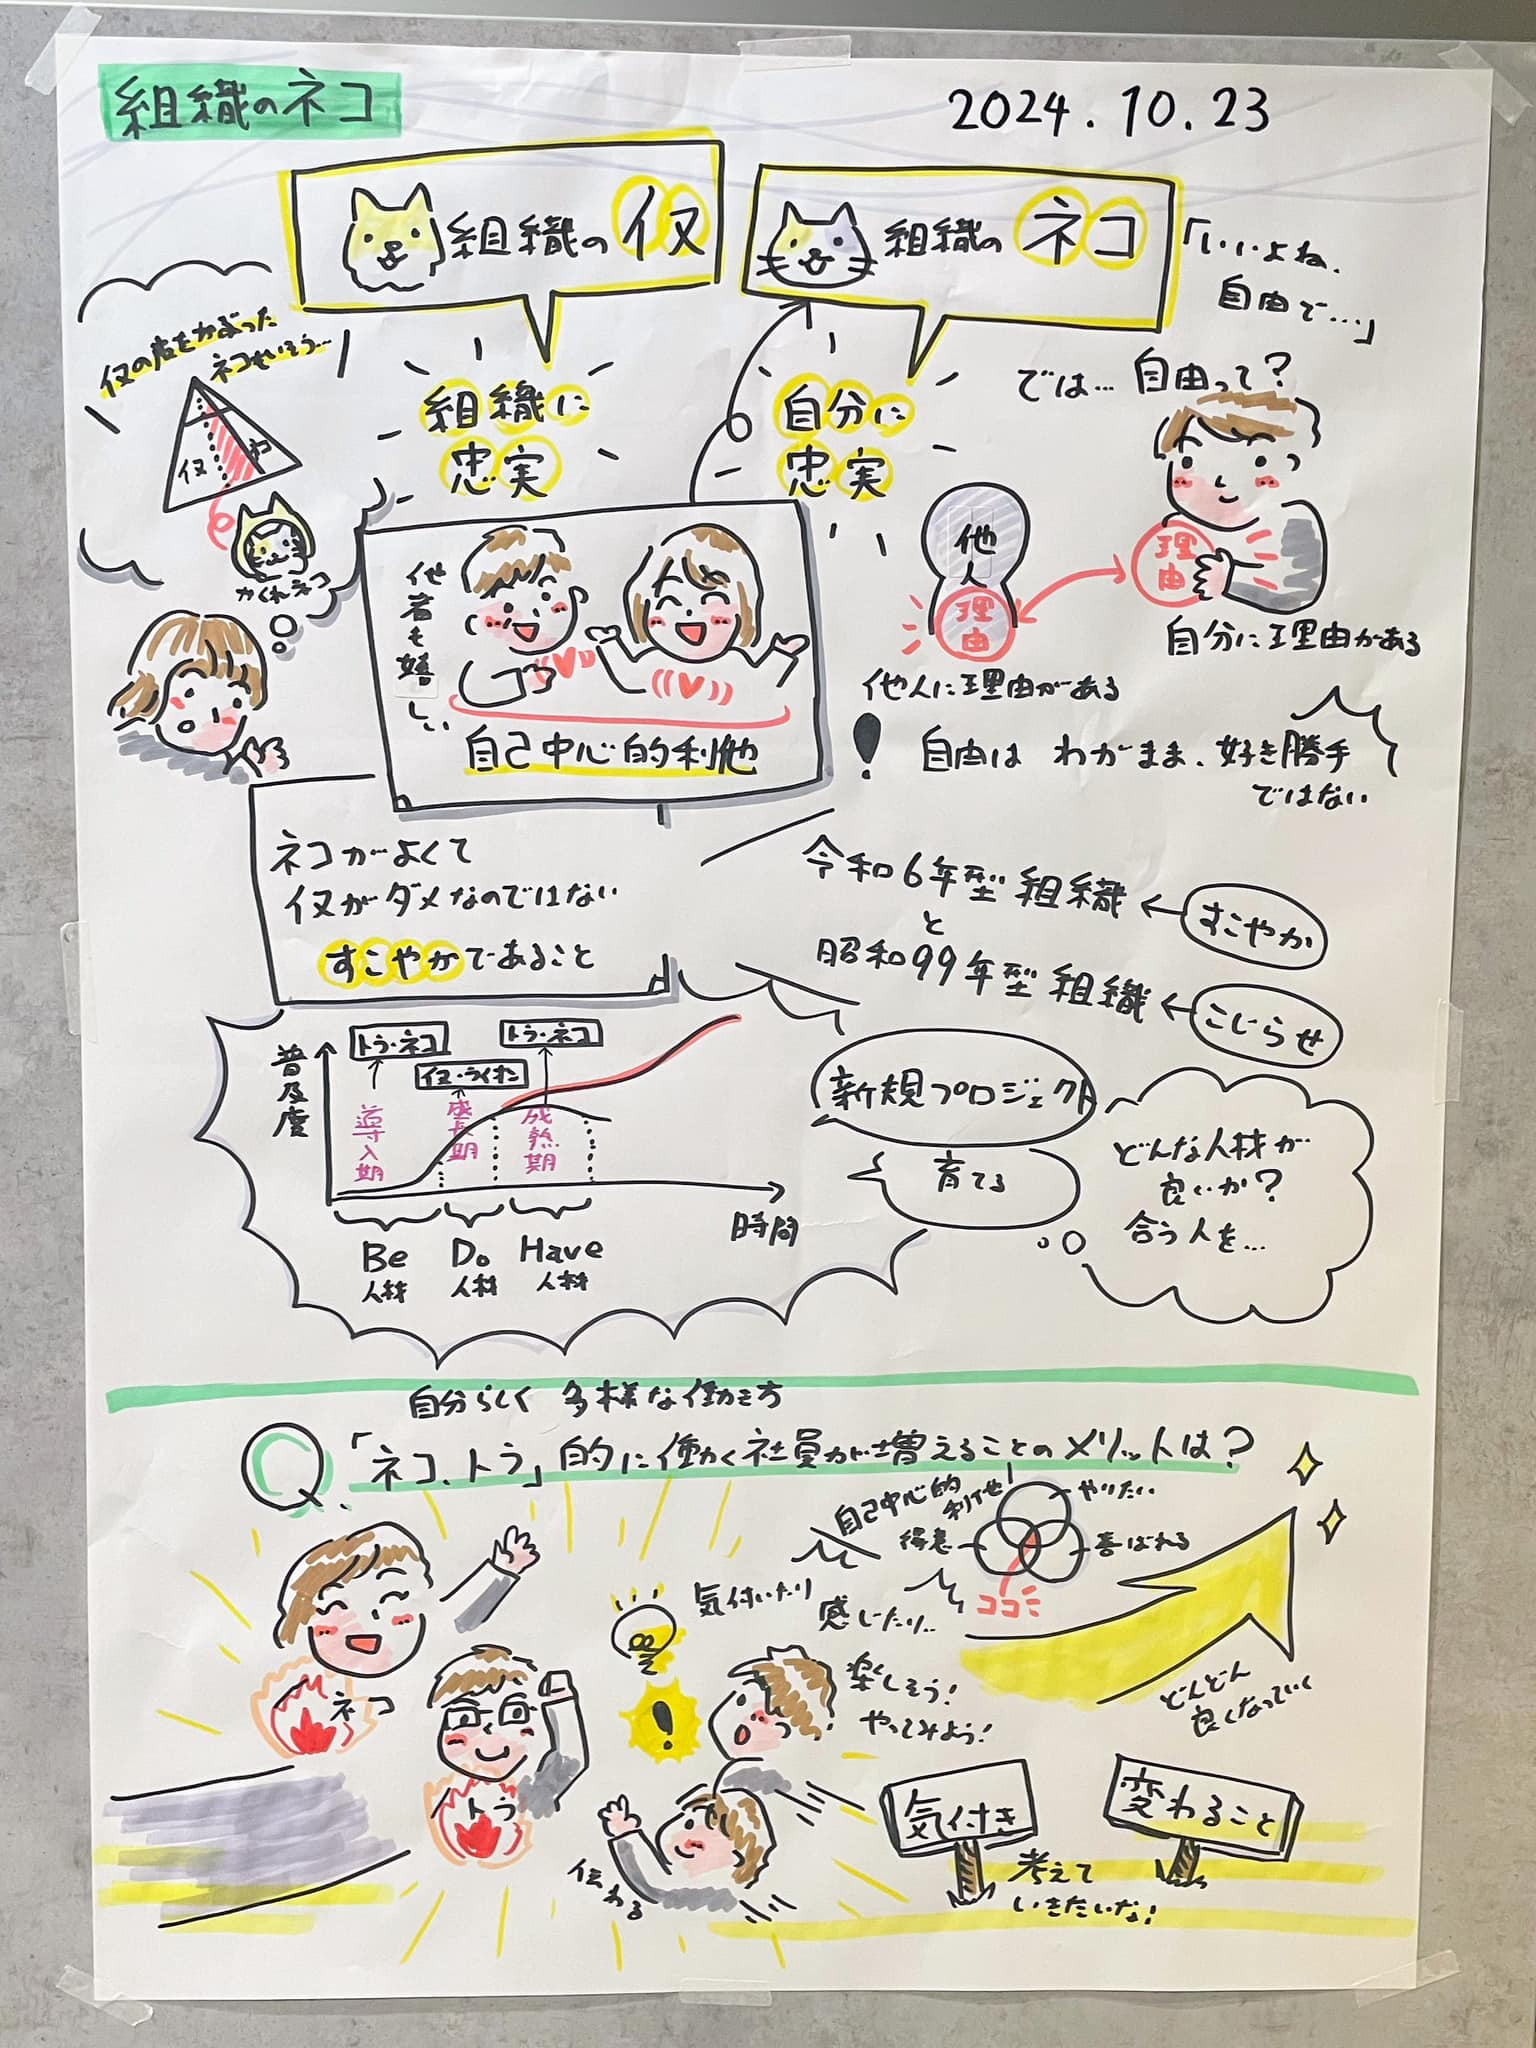 組織のネコ
2024.10.23
組織のイヌ
組織のネコ
「いいよね、
自由で…」
イヌの皮をかぶった
ネコもいそう…
イヌ
ネコ
かくれネコ
組織に
忠実
自分に
忠実
では… 自由って?
他人
理由
理由
他人に理由がある
自分に理由がある
他者も嬉しい
自己中心的利他
自由は わがまま、好き勝手
ではない
ネコがよくて
イヌがダメなのではない
すこやかであること
令和6年型組織
すこやか
と
昭和99年型組織
こじらせ
普及度
トラ・ネコ
イヌ・ライオン
トラ・ネコ
導入期
成長期
成熟期
時間
Be
人材
Do
人材
Have
人材
新規プロジェクト
育てる
どんな人材が
良いか?
合う人を…
自分らしく 多様な働き方
Q.「ネコ、トラ」的に働く社員が増えることのメリットは?
自己中心的
利他
やりたい
得意
喜ばれる
ココ
気付いたり
感じたり…
ネコ
トラ
楽しそう!
やってみよう!
どんどん
良くなっていく
伝わる
気付き
変わること
考えて
いきたいな!